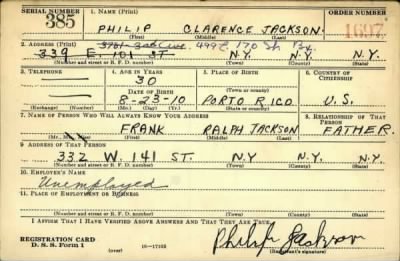 SERIAL NUMBER 1. NAME (Print) ORDER NUMBER
385 PHILIP CLARENCE JACKSON. 1697
(First) (Middle) (Last)
2. ADDRESS (Print)
339 E. 101 ST N.Y. N.Y. N.Y.
(Number and street or R. F. D. number) (Town) (County) (State)
3. TELEPHONE 4. AGE IN YEARS 5. PLACE OF BIRTH 6. COUNTRY OF CITIZENSHIP
30
DATE OF BIRTH PORTO RICO (Town or county) U.S.
8-23-10
(Exchange) (Number) (Mo.) (Day) (Yr.) (State or country)
7. NAME OF PERSON WHO WILL ALWAYS KNOW YOUR ADDRESS 8. RELATIONSHIP OF THAT PERSON
FRANK RALPH JACKSON FATHER.
(Mr., Mrs., Miss) (First) (Middle) (Last)
9. ADDRESS OF THAT PERSON
332 W. 141 ST. N.Y N.Y. N.Y.
(Number and street or R. F. D. number) (Town) (County) (State)
10. EMPLOYER'S NAME
Unemployed
11. PLACE OF EMPLOYMENT OR BUSINESS
(Number and street or R. F. D. number) (Town) (County) (State)
I AFFIRM THAT I HAVE VERIFIED ABOVE ANSWERS AND THAT THEY ARE TRUE.
REGISTRATION CARD
D. S. S. Form 1 (over) 16-17105 Philip Jackson
(Registrant's signature)